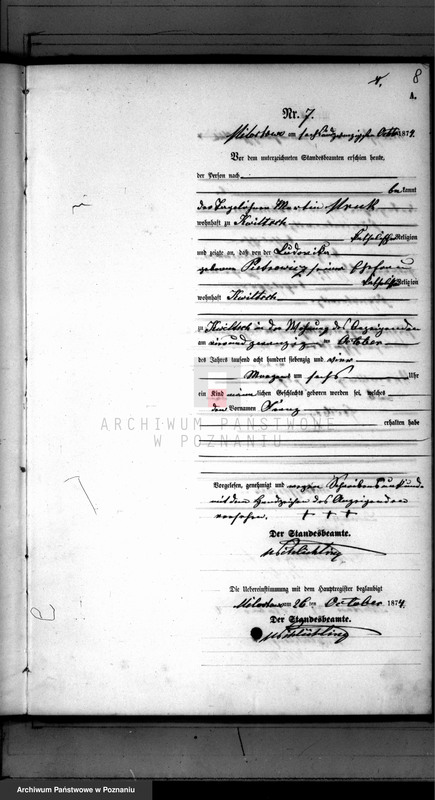 8
A.
Nr. 7.
Milostowo am sechsundzwanzigsten October 1874.
Vor dem unterzeichneten Standesbeamten erschien heute,
der Person nach
be kannt
der Tagelöhner Martin
wohnhaft zu Kwiltsch
katholischer Religion
und zeigte an, daß von der Ludovika
geborene Pietrowicz seiner Ehefrau
katholischer Religion
wohnhaft Kwiltsch
zu Kwiltsch in der Wohnung des Anzeigenden
am vierundzwanzigsten October
des Jahres tausend acht hundert siebenzig und vier
Morgens um sechs Uhr
ein Kind männlichen Geschlechts geboren worden sei, welches
den Vornamen Franz
erhalten habe
ARCHIWUM PAŃSTWOWE
W POZNANIU
Vorgelesen, genehmigt und wegen Schreibensunkunde
mit dem Handzeichen des Anzeigenden
versehen. + + +
Der Standesbeamte.
Die Uebereinstimmung mit dem Hauptregister beglaubigt
Milostowo am 26 ten October 1874.
Der Standesbeamte.
Archiwum Państwowe w Poznaniu